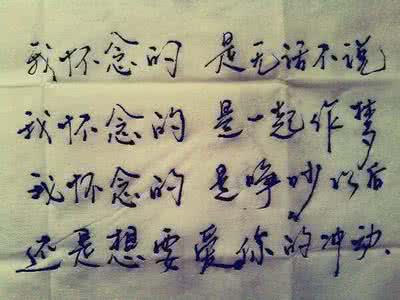 我怀念的 是无话不说
我怀念的 是一起作梦
我怀念的 是争吵以后
还是想要爱你的冲动、